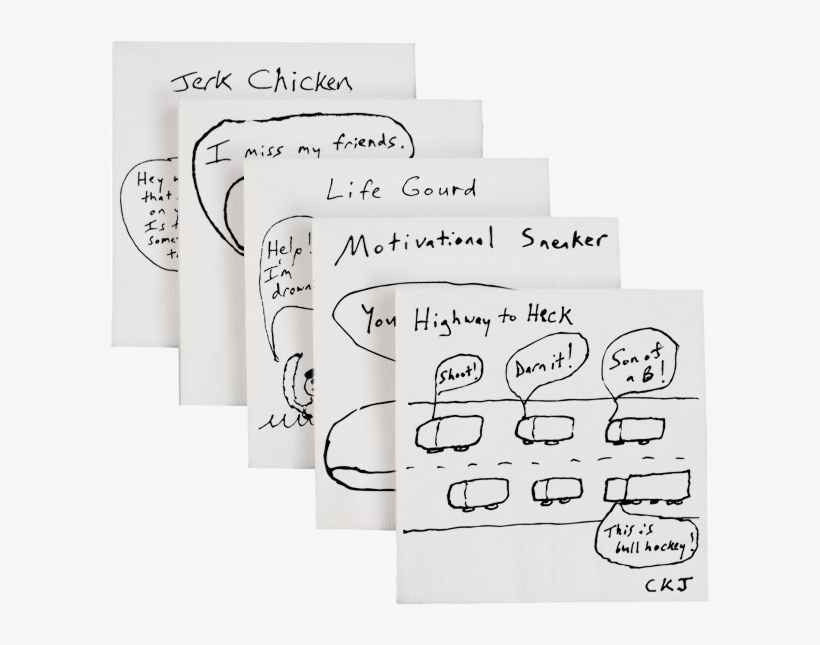 Jerk Chicken
Hey
that
on
Is
some
I miss my friends.
Life Gourd
Help!
I'm
drown
Motivational Sneaker
You
Highway to Heck
Shoot!
Darn it!
Son of
a B!
This is
bull hockey!
CKJ